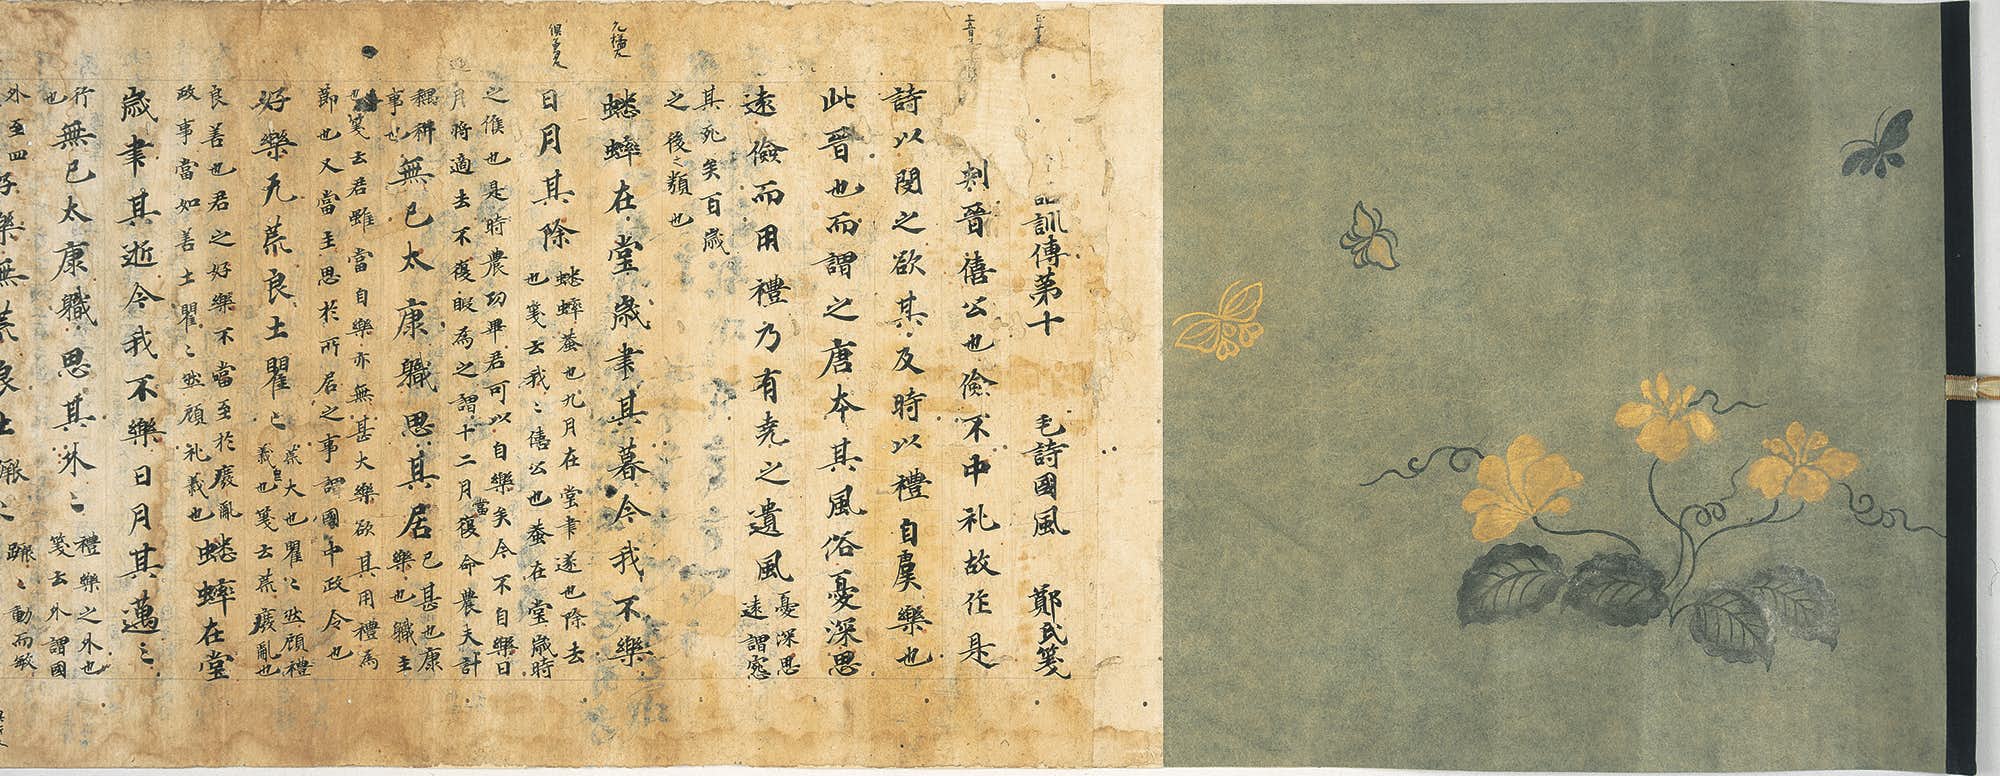 訓傳第十 毛詩國風 鄭氏箋
刺晉僖公也儉不中礼故作是
詩以閔之欲其及時以禮自虞樂也
此晉也而謂之唐本其風俗憂深思
遠儉而用禮乃有尭之遺風 憂深思
遠謂宛
其死矣百歳
之後〻類也
蟋蟀在堂歳聿其暮今我不樂
日月其除 蟋蟀蛬也九月在堂聿遂也除去
也箋云我〻僖公也蛬在堂歳時
之候也是時農功畢君可以自樂矣今不自樂日
月将適去不復暇為之謂十二月當復命農夫計
耦耕
事也 無已太康職思其居 已甚也康
樂也職主
也箋云君雖當自樂亦無甚大樂欲其用禮為
節也又當主思於所居之事謂國中政令也
好樂无荒良士瞿〻 荒大也瞿〻然顧禮
義也箋云荒廢亂也
良善也君之好樂不當至於廢亂
政事當如善士瞿〻然顧礼義也 蟋蟀在堂
歳聿其逝今我不樂日月其邁〻
行
也 無已太康職思其外〻 禮樂之外也
箋云外謂國
外至四 好樂無荒良士蹶〻 蹶〻動而敏